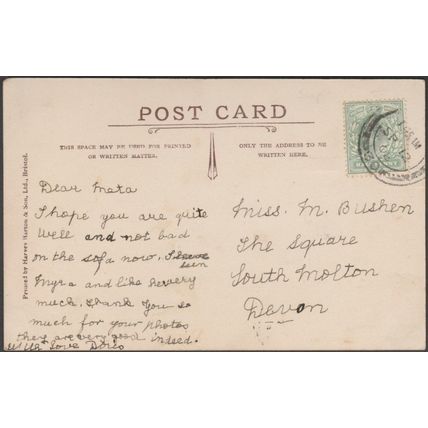 POST CARD
THIS SPACE MAY BE USED FOR PRINTED
OR WRITTEN MATTER.
ONLY THE ADDRESS TO BE
WRITTEN HERE.
Printed by Harvey Barton & Son, Ltd., Bristol.
Dear Meta
I hope you are quite
well and not bad
on the sofa now, I have
seen
Myra and like her very
much, thank you so
much for your photos
they are very good indeed.
With love Doris
Miss. M. Bushen
The Square
South Molton
Devon